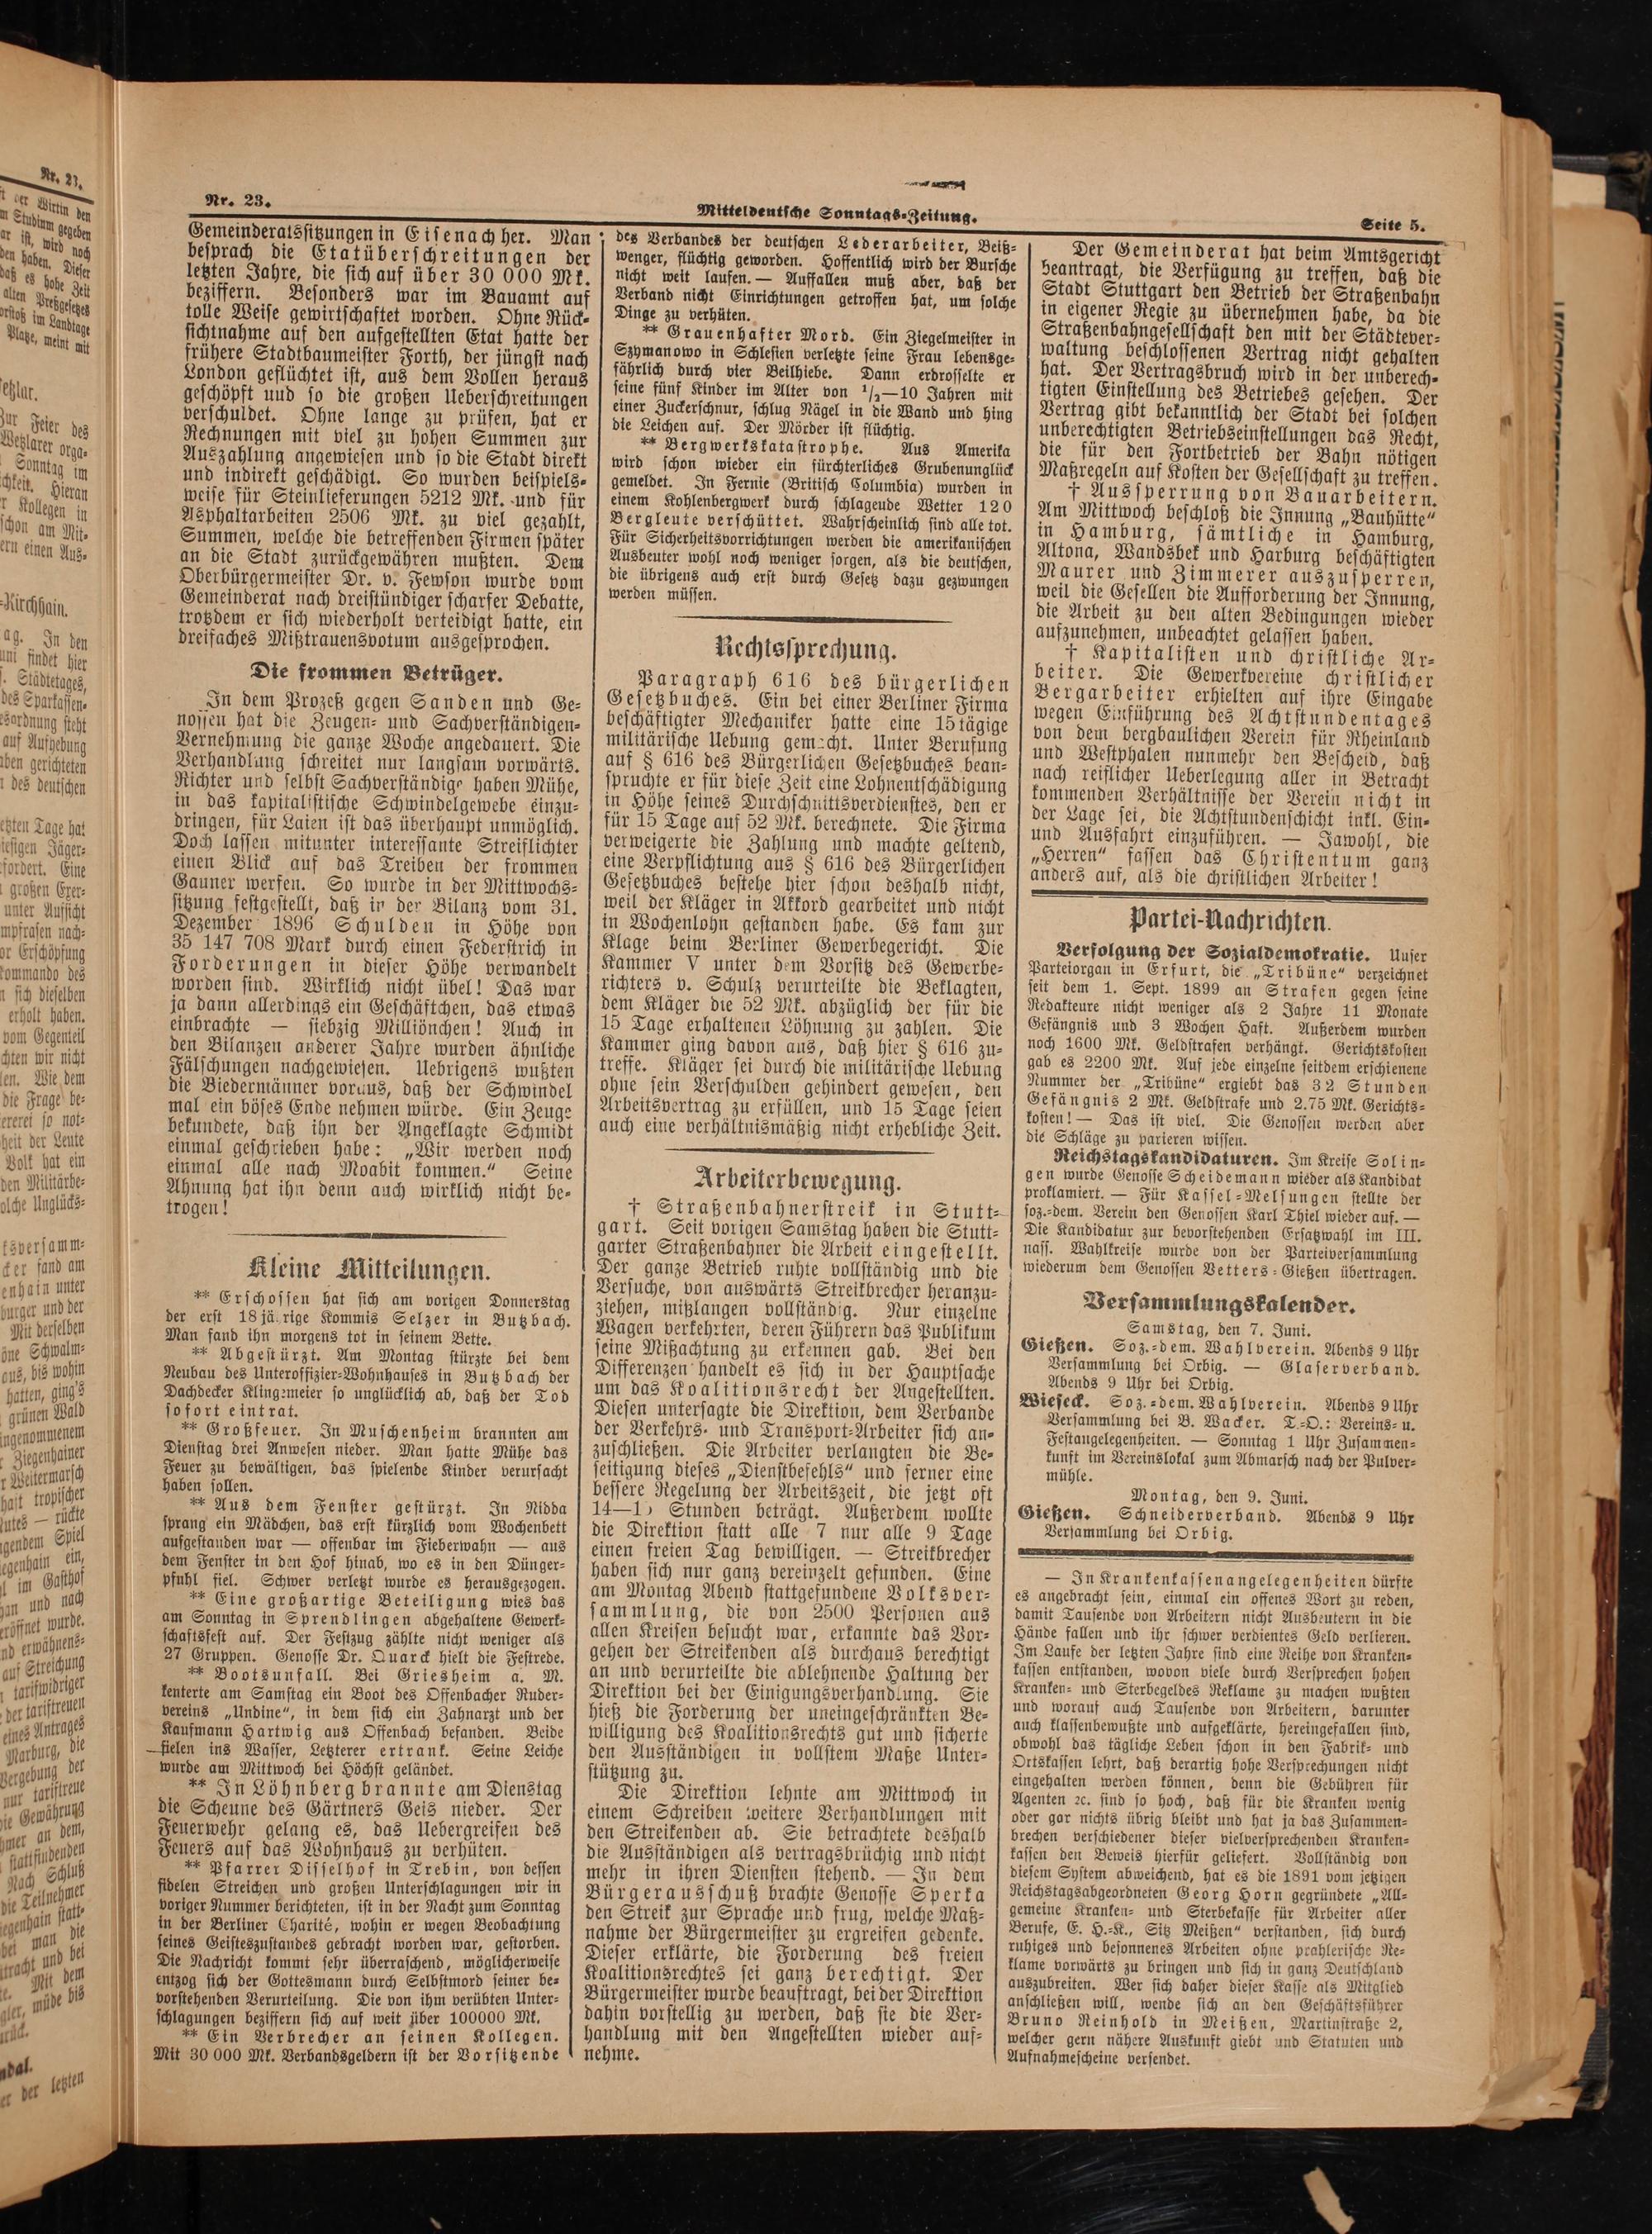 Nr. 23.
Mitteldeutsche Sonntags-Zeitung.
Seite 5.
Gemeinderatssitzungen in Eisenach her. Man
besprach die Etatüberschreitungen der
letzten Jahre, die sich auf über 30 000 Mk.
beziffern. Besonders war im Bauamt auf
tolle Weise gewirtschaftet worden. Ohne Rück-
sichtnahme auf den aufgestellten Etat hatte der
frühere Stadtbaumeister Forth, der jüngst nach
London geflüchtet ist, aus dem Vollen heraus
geschöpft und so die großen Ueberschreitungen
verschuldet. Ohne lange zu prüfen, hat er
Rechnungen mit viel zu hohen Summen zur
Auszahlung angewiesen und so die Stadt direkt
und indirekt geschädigt. So wurden beispiels-
weise für Steinlieferungen 5212 Mk. und für
Asphaltarbeiten 2506 Mk. zu viel gezahlt,
Summen, welche die betreffenden Firmen später
an die Stadt zurückgewähren mußten. Dem
Oberbürgermeister Dr. v. Fewson wurde vom
Gemeinderat nach dreistündiger scharfer Debatte,
trotzdem er sich wiederholt verteidigt hatte, ein
dreifaches Mißtrauensvotum ausgesprochen.
Die frommen Betrüger.
In dem Prozeß gegen Sanden und Ge-
nossen hat die Zeugen- und Sachverständigen-
Vernehmung die ganze Woche angedauert. Die
Verhandlung schreitet nur langsam vorwärts.
Richter und selbst Sachverständige haben Mühe,
in das kapitalistische Schwindelgewebe einzu-
dringen, für Laien ist das überhaupt unmöglich.
Doch lassen mitunter interessante Streiflichter
einen Blick auf das Treiben der frommen
Gauner werfen. So wurde in der Mittwochs-
sitzung festgestellt, daß in der Bilanz vom 31.
Dezember 1896 Schulden in Höhe von
35 147 708 Mark durch einen Federstrich in
Forderungen in dieser Höhe verwandelt
worden sind. Wirklich nicht übel! Das war
ja dann allerdings ein Geschäftchen, das etwas
einbrachte — siebzig Milliönchen! Auch in
den Bilanzen anderer Jahre wurden ähnliche
Fälschungen nachgewiesen. Uebrigens wußten
die Biedermänner voraus, daß der Schwindel
mal ein böses Ende nehmen würde. Ein Zeuge
bekundete, daß ihn der Angeklagte Schmidt
einmal geschrieben habe: „Wir werden noch
einmal alle nach Moabit kommen.“ Seine
Ahnung hat ihn denn auch wirklich nicht be-
trogen!
Kleine Mitteilungen.
** Erschossen hat sich am vorigen Donnerstag
der erst 18 jährige Kommis Selzer in Butzbach.
Man fand ihn morgens tot in seinem Bette.
** Abgestürzt. Am Montag stürzte bei dem
Neubau des Unteroffizier-Wohnhauses in Butzbach der
Dachdecker Klingsmeier so unglücklich ab, daß der Tod
sofort eintrat.
** Großfeuer. In Muschenheim brannten am
Dienstag drei Anwesen nieder. Man hatte Mühe das
Feuer zu bewältigen, das spielende Kinder verursacht
haben sollen.
** Aus dem Fenster gestürzt. In Nidda
sprang ein Mädchen, das erst kürzlich vom Wochenbett
aufgestanden war — offenbar im Fieberwahn — aus
dem Fenster in den Hof hinab, wo es in den Dünger-
pfuhl fiel. Schwer verletzt wurde es herausgezogen.
** Eine großartige Beteiligung wies das
am Sonntag in Sprendlingen abgehaltene Gewerk-
schaftsfest auf. Der Festzug zählte nicht weniger als
27 Gruppen. Genosse Dr. Quarck hielt die Festrede.
** Bootsunfall. Bei Griesheim a. M.
kenterte am Samstag ein Boot des Offenbacher Ruder-
vereins „Undine“, in dem sich ein Zahnarzt und der
Kaufmann Hartwig aus Offenbach befanden. Beide
fielen ins Wasser, Letzterer ertrank. Seine Leiche
wurde am Mittwoch bei Höchst geländet.
** In Löhnberg brannte am Dienstag
die Scheune des Gärtners Geis nieder. Der
Feuerwehr gelang es, das Uebergreifen des
Feuers auf das Wohnhaus zu verhüten.
** Pfarrer Disselhof in Trebin, von dessen
fidelen Streichen und großen Unterschlagungen wir in
voriger Nummer berichteten, ist in der Nacht zum Sonntag
in der Berliner Charité, wohin er wegen Beobachtung
seines Geisteszustandes gebracht worden war, gestorben.
Die Nachricht kommt sehr überraschend, möglicherweise
entzog sich der Gottesmann durch Selbstmord seiner be-
vorstehenden Verurteilung. Die von ihm verübten Unter-
schlagungen beziffern sich auf weit über 100000 Mk.
** Ein Verbrecher an seinen Kollegen.
Mit 30 000 Mk. Verbandsgeldern ist der Vorsitzende
des Verbandes der deutschen Lederarbeiter, Beiß-
wenger, flüchtig geworden. Hoffentlich wird der Bursche
nicht weit laufen. — Auffallen muß aber, daß der
Verband nicht Einrichtungen getroffen hat, um solche
Dinge zu verhüten.
** Grauenhafter Mord. Ein Ziegelmeister in
Szymanowo in Schlesien verletzte seine Frau lebensge-
fährlich durch vier Beilhiebe. Dann erdrosselte er
seine fünf Kinder im Alter von 1/2—10 Jahren mit
einer Zuckerschnur, schlug Nägel in die Wand und hing
die Leichen auf. Der Mörder ist flüchtig.
** Bergwerkskatastrophe. Aus Amerika
wird schon wieder ein fürchterliches Grubenunglück
gemeldet. In Fernie (Britisch Columbia) wurden in
einem Kohlenbergwerk durch schlagende Wetter 120
Bergleute verschüttet. Wahrscheinlich sind alle tot.
Für Sicherheitsvorrichtungen werden die amerikanischen
Ausbeuter wohl noch weniger sorgen, als die deutschen,
die übrigens auch erst durch Gesetz dazu gezwungen
werden müssen.
Rechtssprechung.
Paragraph 616 des bürgerlichen
Gesetzbuches. Ein bei einer Berliner Firma
beschäftigter Mechaniker hatte eine 15 tägige
militärische Uebung gemacht. Unter Berufung
auf § 616 des Bürgerlichen Gesetzbuches bean-
spruchte er für diese Zeit eine Lohnentschädigung
in Höhe seines Durchschnittsverdienstes, den er
für 15 Tage auf 52 Mk. berechnete. Die Firma
verweigerte die Zahlung und machte geltend,
eine Verpflichtung aus § 616 des Bürgerlichen
Gesetzbuches bestehe hier schon deshalb nicht,
weil der Kläger in Akkord gearbeitet und nicht
in Wochenlohn gestanden habe. Es kam zur
Klage beim Berliner Gewerbegericht. Die
Kammer V unter dem Vorsitz des Gewerbe-
richters v. Schulz verurteilte die Beklagten,
dem Kläger die 52 Mk. abzüglich der für die
15 Tage erhaltenen Löhnung zu zahlen. Die
Kammer ging davon aus, daß hier § 616 zu-
treffe. Kläger sei durch die militärische Uebung
ohne sein Verschulden gehindert gewesen, den
Arbeitsvertrag zu erfüllen, und 15 Tage seien
auch eine verhältnismäßig nicht erhebliche Zeit.
Arbeiterbewegung.
† Straßenbahnerstreik in Stutt-
gart. Seit vorigen Samstag haben die Stutt-
garter Straßenbahner die Arbeit eingestellt.
Der ganze Betrieb ruhte vollständig und die
Versuche, von auswärts Streikbrecher heranzu-
ziehen, mißlangen vollständig. Nur einzelne
Wagen verkehrten, deren Führern das Publikum
seine Mißachtung zu erkennen gab. Bei den
Differenzen handelt es sich in der Hauptsache
um das Koalitionsrecht der Angestellten.
Diesen untersagte die Direktion, dem Verbande
der Verkehrs- und Transport-Arbeiter sich an-
zuschließen. Die Arbeiter verlangten die Be-
seitigung dieses „Dienstbefehls“ und ferner eine
bessere Regelung der Arbeitszeit, die jetzt oft
14—15 Stunden beträgt. Außerdem wollte
die Direktion statt alle 7 nur alle 9 Tage
einen freien Tag bewilligen. — Streikbrecher
haben sich nur ganz vereinzelt gefunden. Eine
am Montag Abend stattgefundene Volksver-
sammlung, die von 2500 Personen aus
allen Kreisen besucht war, erkannte das Vor-
gehen der Streikenden als durchaus berechtigt
an und verurteilte die ablehnende Haltung der
Direktion bei der Einigungsverhandlung. Sie
hieß die Forderung der uneingeschränkten Be-
willigung des Koalitionsrechts gut und sicherte
den Ausständigen in vollstem Maße Unter-
stützung zu.
Die Direktion lehnte am Mittwoch in
einem Schreiben weitere Verhandlungen mit
den Streikenden ab. Sie betrachtete deshalb
die Ausständigen als vertragsbrüchig und nicht
mehr in ihren Diensten stehend. — In dem
Bürgerausschuß brachte Genosse Sperka
den Streik zur Sprache und frug, welche Maß-
nahme der Bürgermeister zu ergreifen gedenke.
Dieser erklärte, die Forderung des freien
Koalitionsrechtes sei ganz berechtigt. Der
Bürgermeister wurde beauftragt, bei der Direktion
dahin vorstellig zu werden, daß sie die Ver-
handlung mit den Angestellten wieder auf-
nehme.
Der Gemeinderat hat beim Amtsgericht
beantragt, die Verfügung zu treffen, daß die
Stadt Stuttgart den Betrieb der Straßenbahn
in eigener Regie zu übernehmen habe, da die
Straßenbahngesellschaft den mit der Städtever-
waltung beschlossenen Vertrag nicht gehalten
hat. Der Vertragsbruch wird in der unberech-
tigten Einstellung des Betriebes gesehen. Der
Vertrag gibt bekanntlich der Stadt bei solchen
unberechtigten Betriebseinstellungen das Recht,
die für den Fortbetrieb der Bahn nötigen
Maßregeln auf Kosten der Gesellschaft zu treffen.
† Aussperrung von Bauarbeitern.
Am Mittwoch beschloß die Innung „Bauhütte“
in Hamburg, sämtliche in Hamburg,
Altona, Wandsbek und Harburg beschäftigten
Maurer und Zimmerer auszusperren,
weil die Gesellen die Aufforderung der Innung,
die Arbeit zu den alten Bedingungen wieder
aufzunehmen, unbeachtet gelassen haben.
† Kapitalisten und christliche Ar-
beiter. Die Gewerkvereine christlicher
Bergarbeiter erhielten auf ihre Eingabe
wegen Einführung des Achtstundentages
von dem bergbaulichen Verein für Rheinland
und Westphalen nunmehr den Bescheid, daß
nach reiflicher Ueberlegung aller in Betracht
kommenden Verhältnisse der Verein nicht in
der Lage sei, die Achtstundenschicht inkl. Ein-
und Ausfahrt einzuführen. — Jawohl, die
„Herren“ fassen das Christentum ganz
anders auf, als die christlichen Arbeiter!
Partei-Nachrichten.
Verfolgung der Sozialdemokratie. Unser
Parteiorgan in Erfurt, die „Tribüne“ verzeichnet
seit dem 1. Sept. 1899 an Strafen gegen seine
Redakteure nicht weniger als 2 Jahre 11 Monate
Gefängnis und 3 Wochen Haft. Außerdem wurden
noch 1600 Mk. Geldstrafen verhängt. Gerichtskosten
gab es 2200 Mk. Auf jede einzelne seitdem erschienene
Nummer der „Tribüne“ ergiebt das 32 Stunden
Gefängnis 2 Mk. Geldstrafe und 2.75 Mk. Gerichts-
kosten! — Das ist viel. Die Genossen werden aber
die Schläge zu parieren wissen.
Reichstagskandidaturen. Im Kreise Solin-
gen wurde Genosse Scheidemann wieder als Kandidat
proklamiert. — Für Kassel-Melsungen stellte der
soz.-dem. Verein den Genossen Karl Thiel wieder auf. —
Die Kandidatur zur bevorstehenden Ersatzwahl im III.
nass. Wahlkreise wurde von der Parteiversammlung
wiederum dem Genossen Vetters-Gießen übertragen.
Versammlungskalender.
Samstag, den 7. Juni.
Gießen. Soz.-dem. Wahlverein. Abends 9 Uhr
Versammlung bei Orbig. — Glaserverband.
Abends 9 Uhr bei Orbig.
Wieseck. Soz.-dem. Wahlverein. Abends 9 Uhr
Versammlung bei B. Wacker. T.-O.: Vereins- u.
Festangelegenheiten. — Sonntag 1 Uhr Zusammen-
kunft im Vereinslokal zum Abmarsch nach der Pulver-
mühle.
Montag, den 9. Juni.
Gießen. Schneiderverband. Abends 9 Uhr
Versammlung bei Orbig.
— In Krankenkassenangelegenheiten dürfte
es angebracht sein, einmal ein offenes Wort zu reden,
damit Tausende von Arbeitern nicht Ausbeutern in die
Hände fallen und ihr schwer verdientes Geld verlieren.
Im Laufe der letzten Jahre sind eine Reihe von Kranken-
kassen entstanden, wovon viele durch Versprechen hohen
Kranken- und Sterbegeldes Reklame zu machen wußten
und worauf auch Tausende von Arbeitern, darunter
auch klassenbewußte und aufgeklärte, hereingefallen sind,
obwohl das tägliche Leben schon in den Fabrik- und
Ortskassen lehrt, daß derartig hohe Versprechungen nicht
eingehalten werden können, denn die Gebühren für
Agenten ꝛc. sind so hoch, daß für die Kranken wenig
oder gar nichts übrig bleibt und hat ja das Zusammen-
brechen verschiedener dieser vielversprechenden Kranken-
kassen den Beweis hierfür geliefert. Vollständig von
diesem System abweichend, hat es die 1891 vom jetzigen
Reichstagsabgeordneten Georg Horn gegründete „All-
gemeine Kranken- und Sterbekasse für Arbeiter aller
Berufe, E. H.-K., Sitz Meißen“ verstanden, sich durch
ruhiges und besonnenes Arbeiten ohne prahlerische Re-
klame vorwärts zu bringen und sich in ganz Deutschland
auszubreiten. Wer sich daher dieser Kasse als Mitglied
anschließen will, wende sich an den Geschäftsführer
Bruno Reinhold in Meißen, Martinstraße 2,
welcher gern nähere Auskunft giebt und Statuten und
Aufnahmescheine versendet.